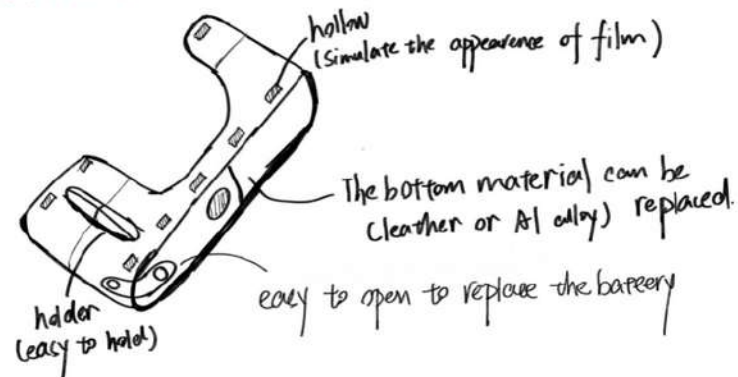 hollow
(simulate the appearence of film)
The bottom material can be
(leather or Al alloy) replaced.
easy to open to replace the bateery
holder
(easy to hold)